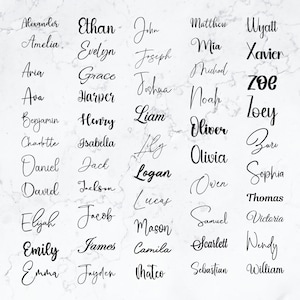 Alexander
Amelia
Aria
Ava
Benjamin
Charlotte
Daniel
David
Elijah
Emily
Emma
Ethan
Evelyn
Grace
Harper
Henry
Isabella
Jack
Jackson
Jacob
James
Jayden
John
Joseph
Joshua
Liam
Lily
Logan
Lucas
Mason
Camila
Mateo
Matthew
Mia
Michael
Noah
Oliver
Olivia
Owen
Samuel
Scarlett
Sebastian
Wyatt
Xavier
ZOE
Zoey
Sophia
Thomas
Victoria
Wendy
William